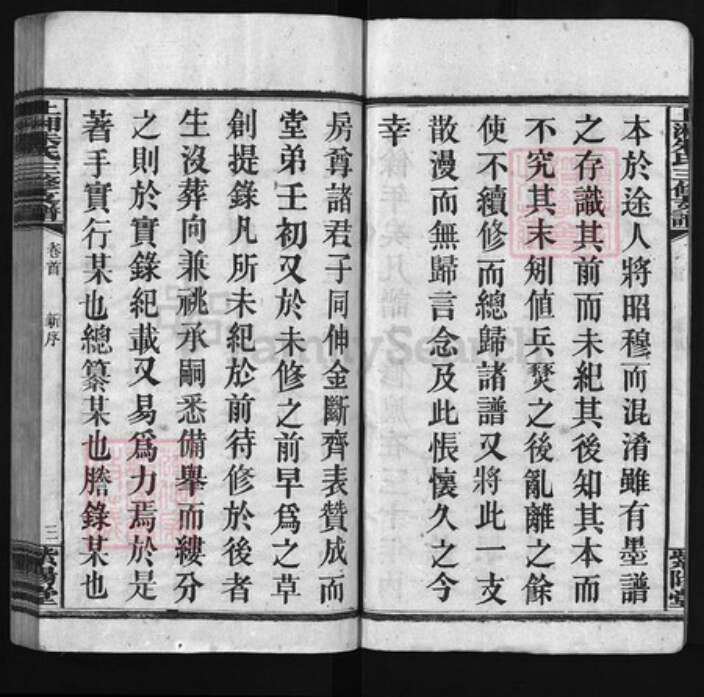 本於途人將昭穆而混淆雖有墨譜
之存識其前而未紀其後知其本而
不究其末矧值兵燹之後亂離之餘
使不續修而總歸諸譜又將此一支
散漫而無歸言念及此悵懷久之今
幸
房尊諸君子同伸金斷齊表贊成而
堂弟壬初又於未修之前早為之草
創提錄凡所未紀於前待修於後者
生沒葬向兼祧承嗣悉備舉而縷分
之則於實錄紀載又易爲力焉於是
著手實行某也總纂某也謄錄某也
卷首
新序
三
紫陽堂
FamilySearch